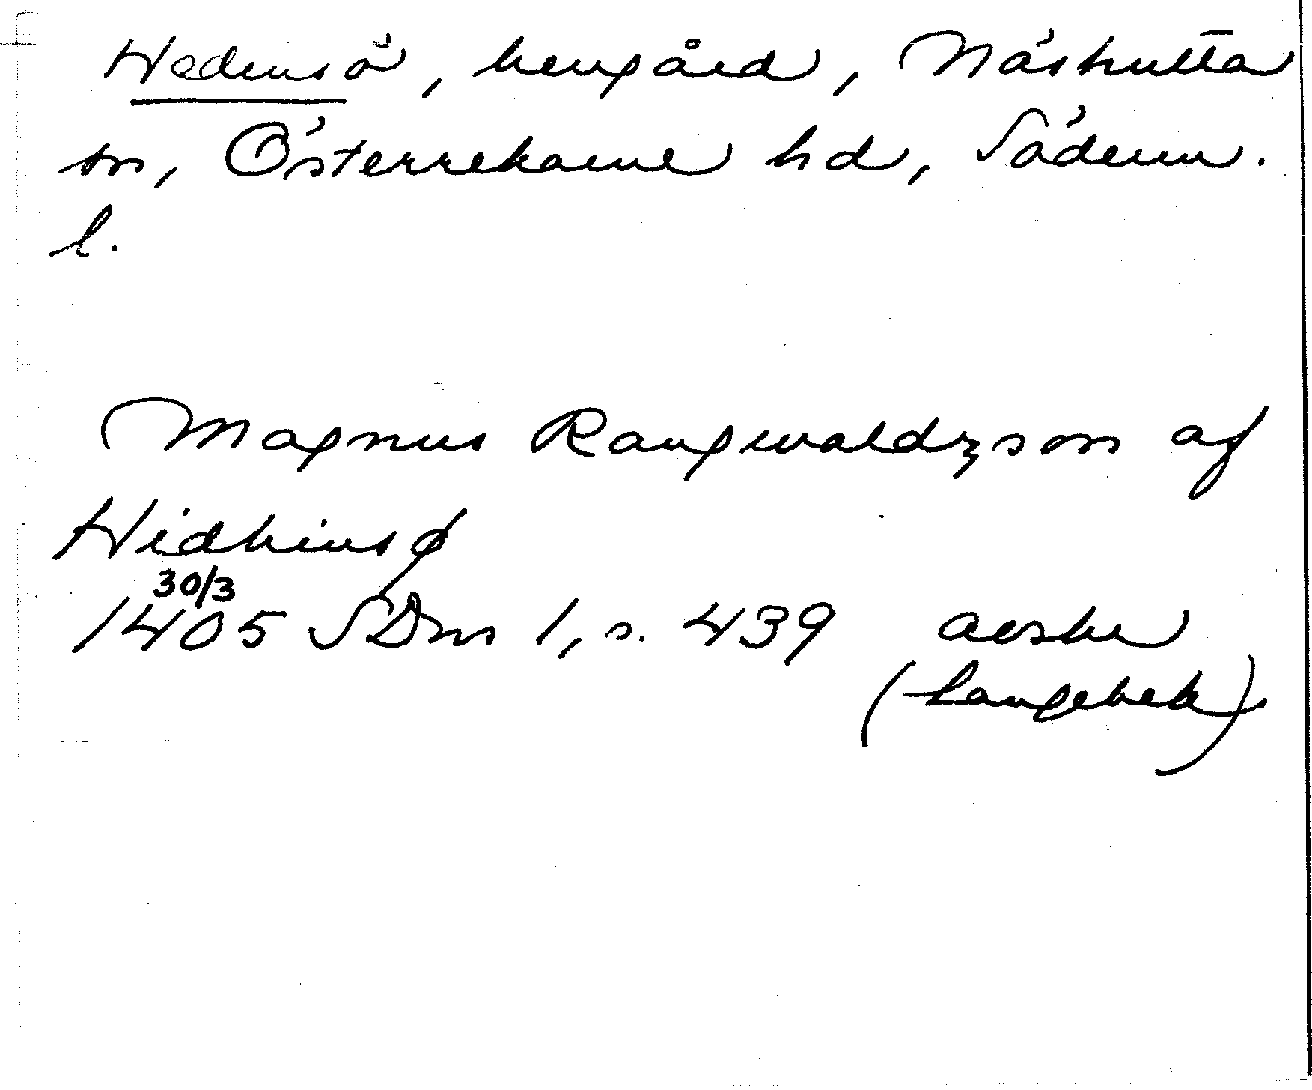 Hedensö, herrgård, Näshulta
sn, Österrekarne hd, Söderm.
l.
Magnus Rangwaldzson af
Hidhinsø
30/3
1405 SDns 1, s. 439 avskr
(Langebek)